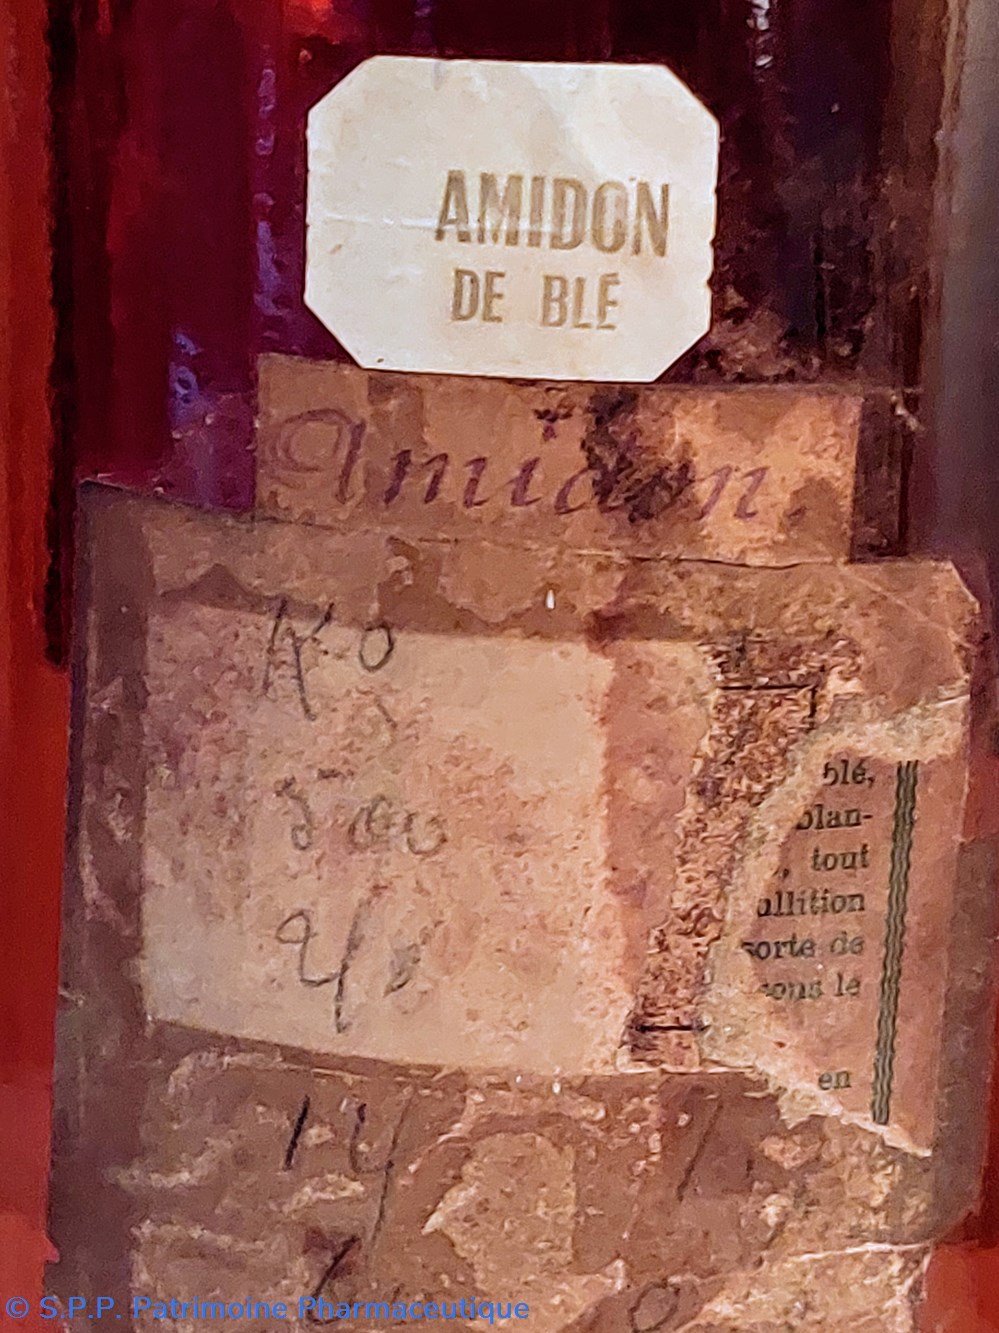 AMIDON
DE BLÉ
Amidon.
Ko
500
blé,
blan-
, tout
ullition
sorte de
sous le
en
14
© S.P.P. Patrimoine Pharmaceutique